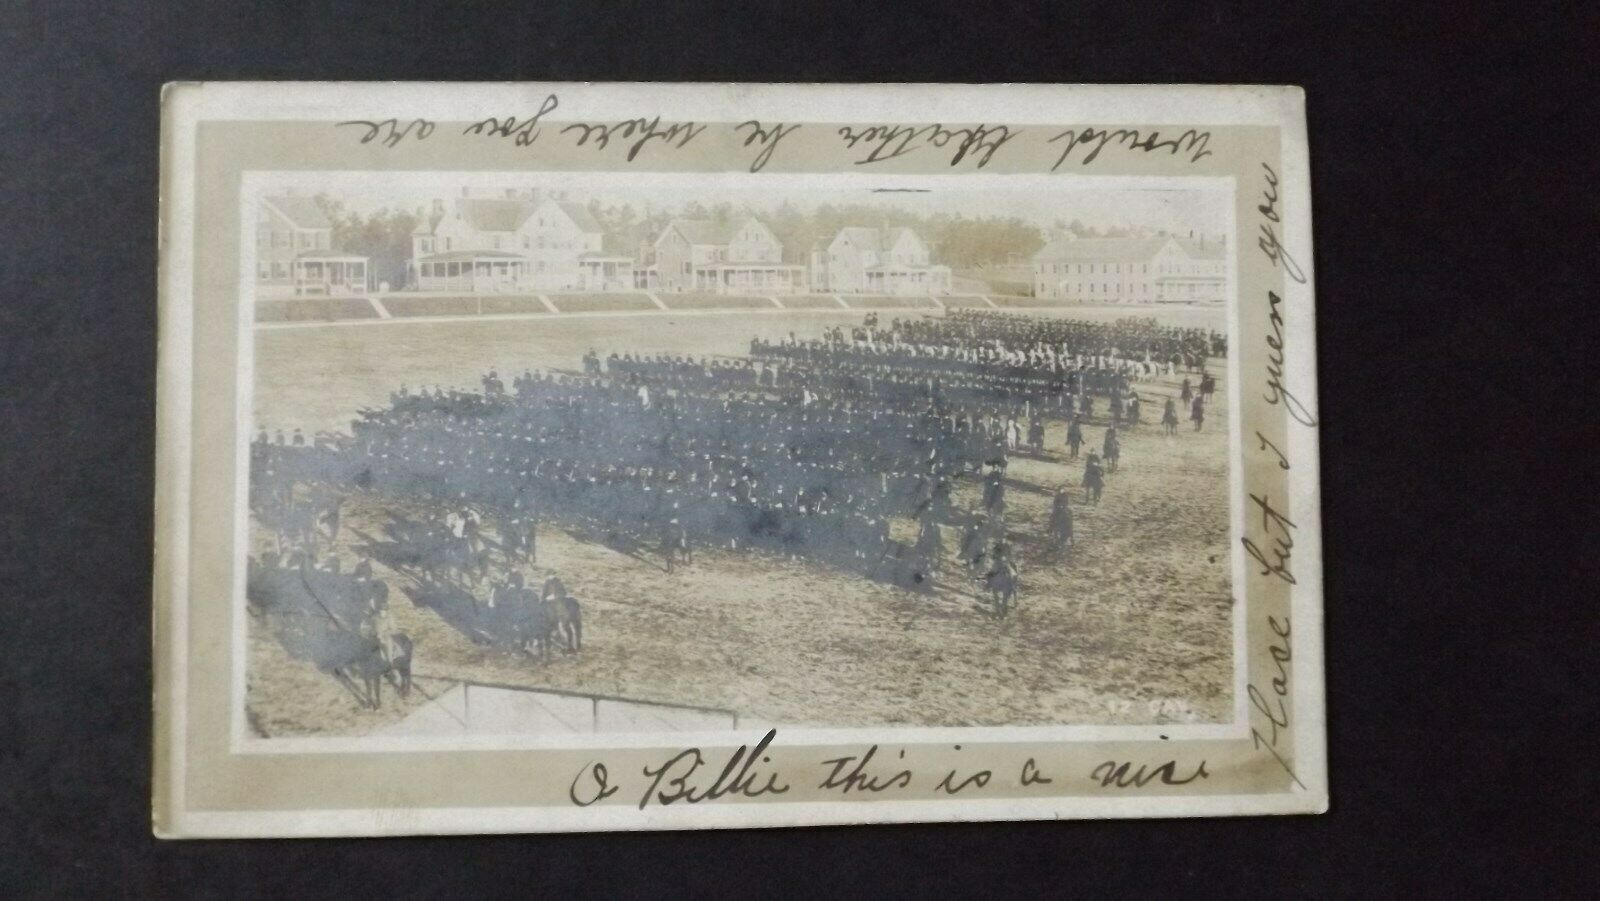 O Billie this is a nice
Place but I guess you
would Rather be where you are
12 CAV.